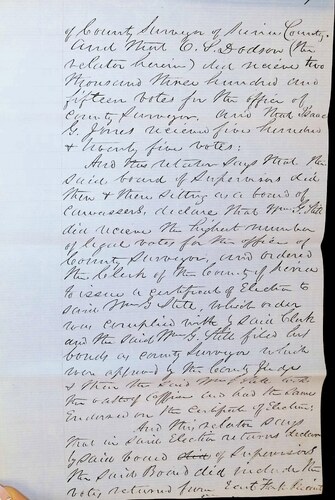 of County Surveyor of Sierra County.
And that C. S. Dodson (the
relator herein) did receive two
thousand three hundred and
fifteen votes for the office of
County Surveyor. And that Isaac
G. Jones received five hundred
& twenty five votes:
And this relator says that the
said board of Supervisors did
then & there sitting as a board of
canvassers, declare that Wm G. Still
did receive the highest number
of legal votes for the office of
County Surveyor, and ordered
the Clerk of the County of Sierra
to issue a certificate of Election to
said Wm G Still, which order
was complied with by said Clerk
and the said Wm G. Still filed his
bonds as county Surveyor which
was approved by the County Judge
& then the said Wm Still
the oath of office and had the same
Endorsed on the Certificate of Election:
And this relator says
that in said Election returns
by said board of Supervisors
the said Board did include the
votes returned from